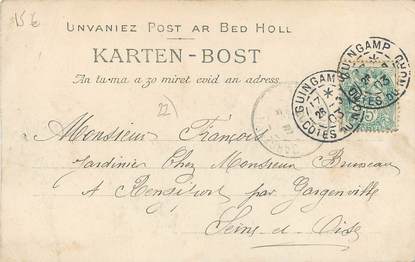 15 €
UNVANIEZ POST AR BED HOLL
KARTEN-BOST
An tu-ma a zo miret evid an adress.
22
GUINGAMP
17 *
26
03
COTES DU NORD
GUINGAMP
26
03
COTES DU NORD
Monsieur François
Jardinier Chez Monsieur Bruneau
A par Gargenville
Seine et Oise